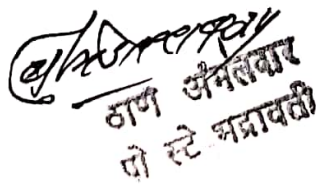 ठाणे अंमलदार
पो स्टे भद्रावती